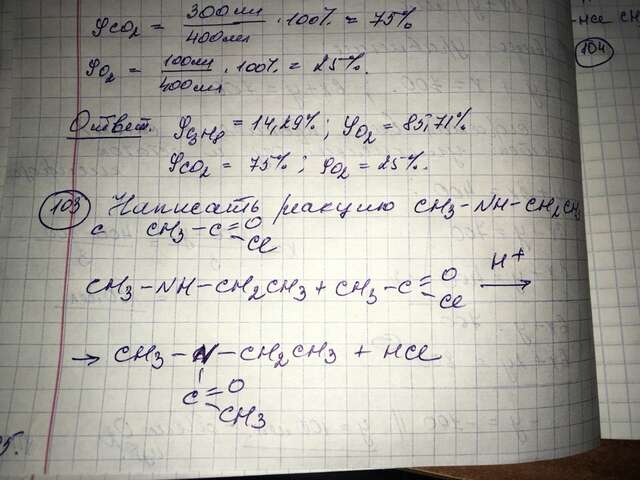 φCO₂ = 300мл/400мл · 100% = 75%
φO₂ = 100мл/400мл · 100% = 25%.
Ответ. φC₃H₈ = 14,29% ; φO₂ = 85,71%
φCO₂ = 75% ; φO₂ = 25%.
103 Написать реакцию CH₃-NH-CH₂CH₃
с CH₃-C=O
Cl
CH₃-NH-CH₂CH₃ + CH₃-C=O
Cl
H⁺ →
→ CH₃-N-CH₂CH₃ + HCl
C=O
CH₃
104
5.